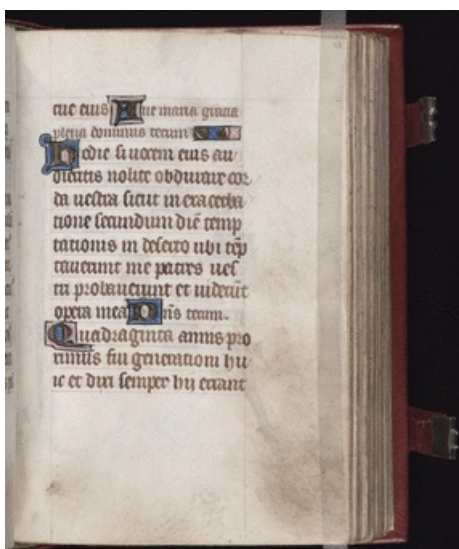 cue eius Aue maria gracia
plena dominus tecum
Hodie si uocem eius au
dieritis nolite obdurare cor
da uestra sicut in exacerba
tione secundum diē temp
tationis in deserto ubi tēp
tauerunt me patres ues
tri probauerunt et uiderūt
opera mea Dn̄s tecum.
Quadraginta annis pro
ximus fui generationi hu
ic et dixi semper hij errant